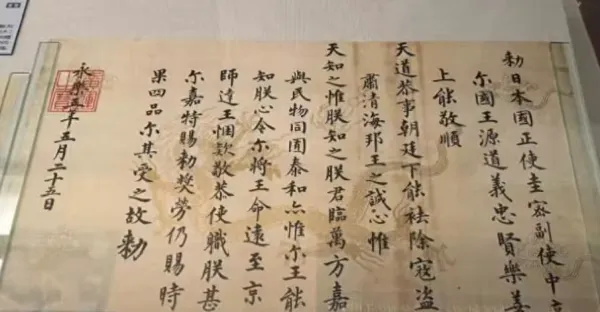 勑日本國正使圭密副使中
尔國王源道義忠賢樂善
上能敬順
天道恭事朝廷下能祛除寇盜
肅清海邦王之誠心惟
天知之惟朕知之朕君臨萬方嘉
與民物同囿泰和亦惟尔王能
知朕心今尔將王命遠至京
師達王悃欵敬恭使職朕甚
尔嘉特賜勑奬勞仍賜時
果四品尔其受之故勑
永樂五年五月二十五日